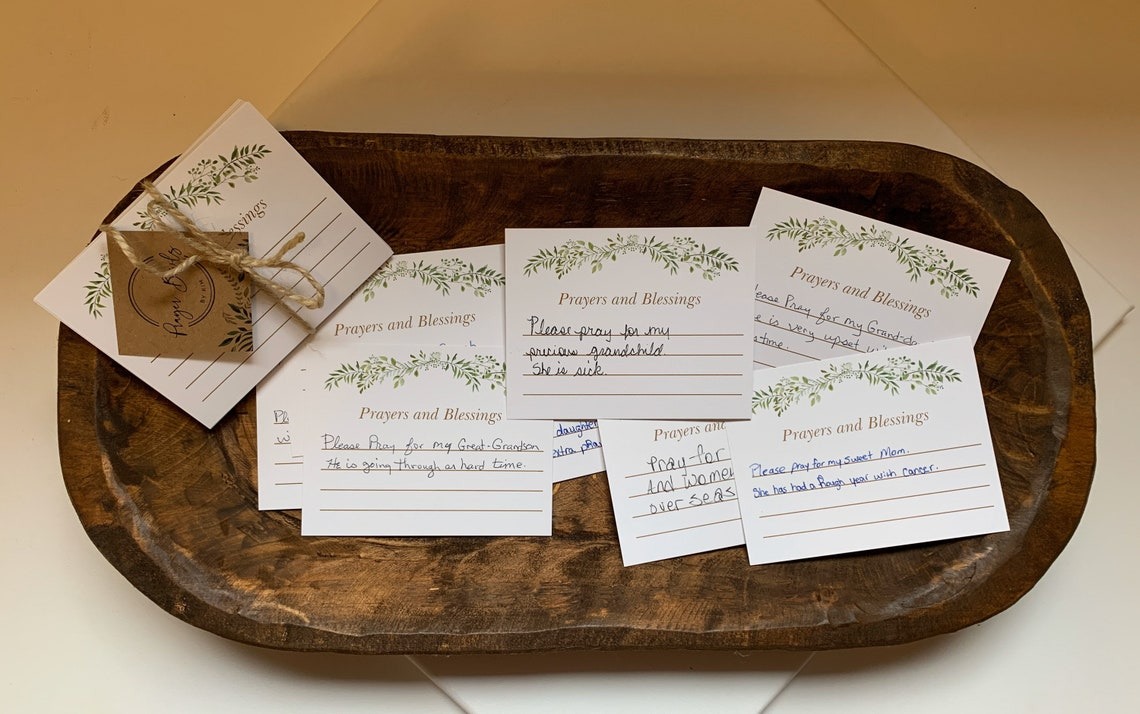 essings
Prayer Bowls
BY KIM
Prayers and Blessings
Prayers and Blessings
Please Pray for my Great-Grandson
He is going through a hard time.
daughter
extra
Prayers and Blessings
Please pray for my
precious grandchild.
She is sick.
Prayers and Blessings
ease Pray for my Grand-d
e is very upset
time.
Prayers and
Pray for
And women
over seas
Prayers and Blessings
Please pray for my sweet Mom.
She has had a rough year with cancer.